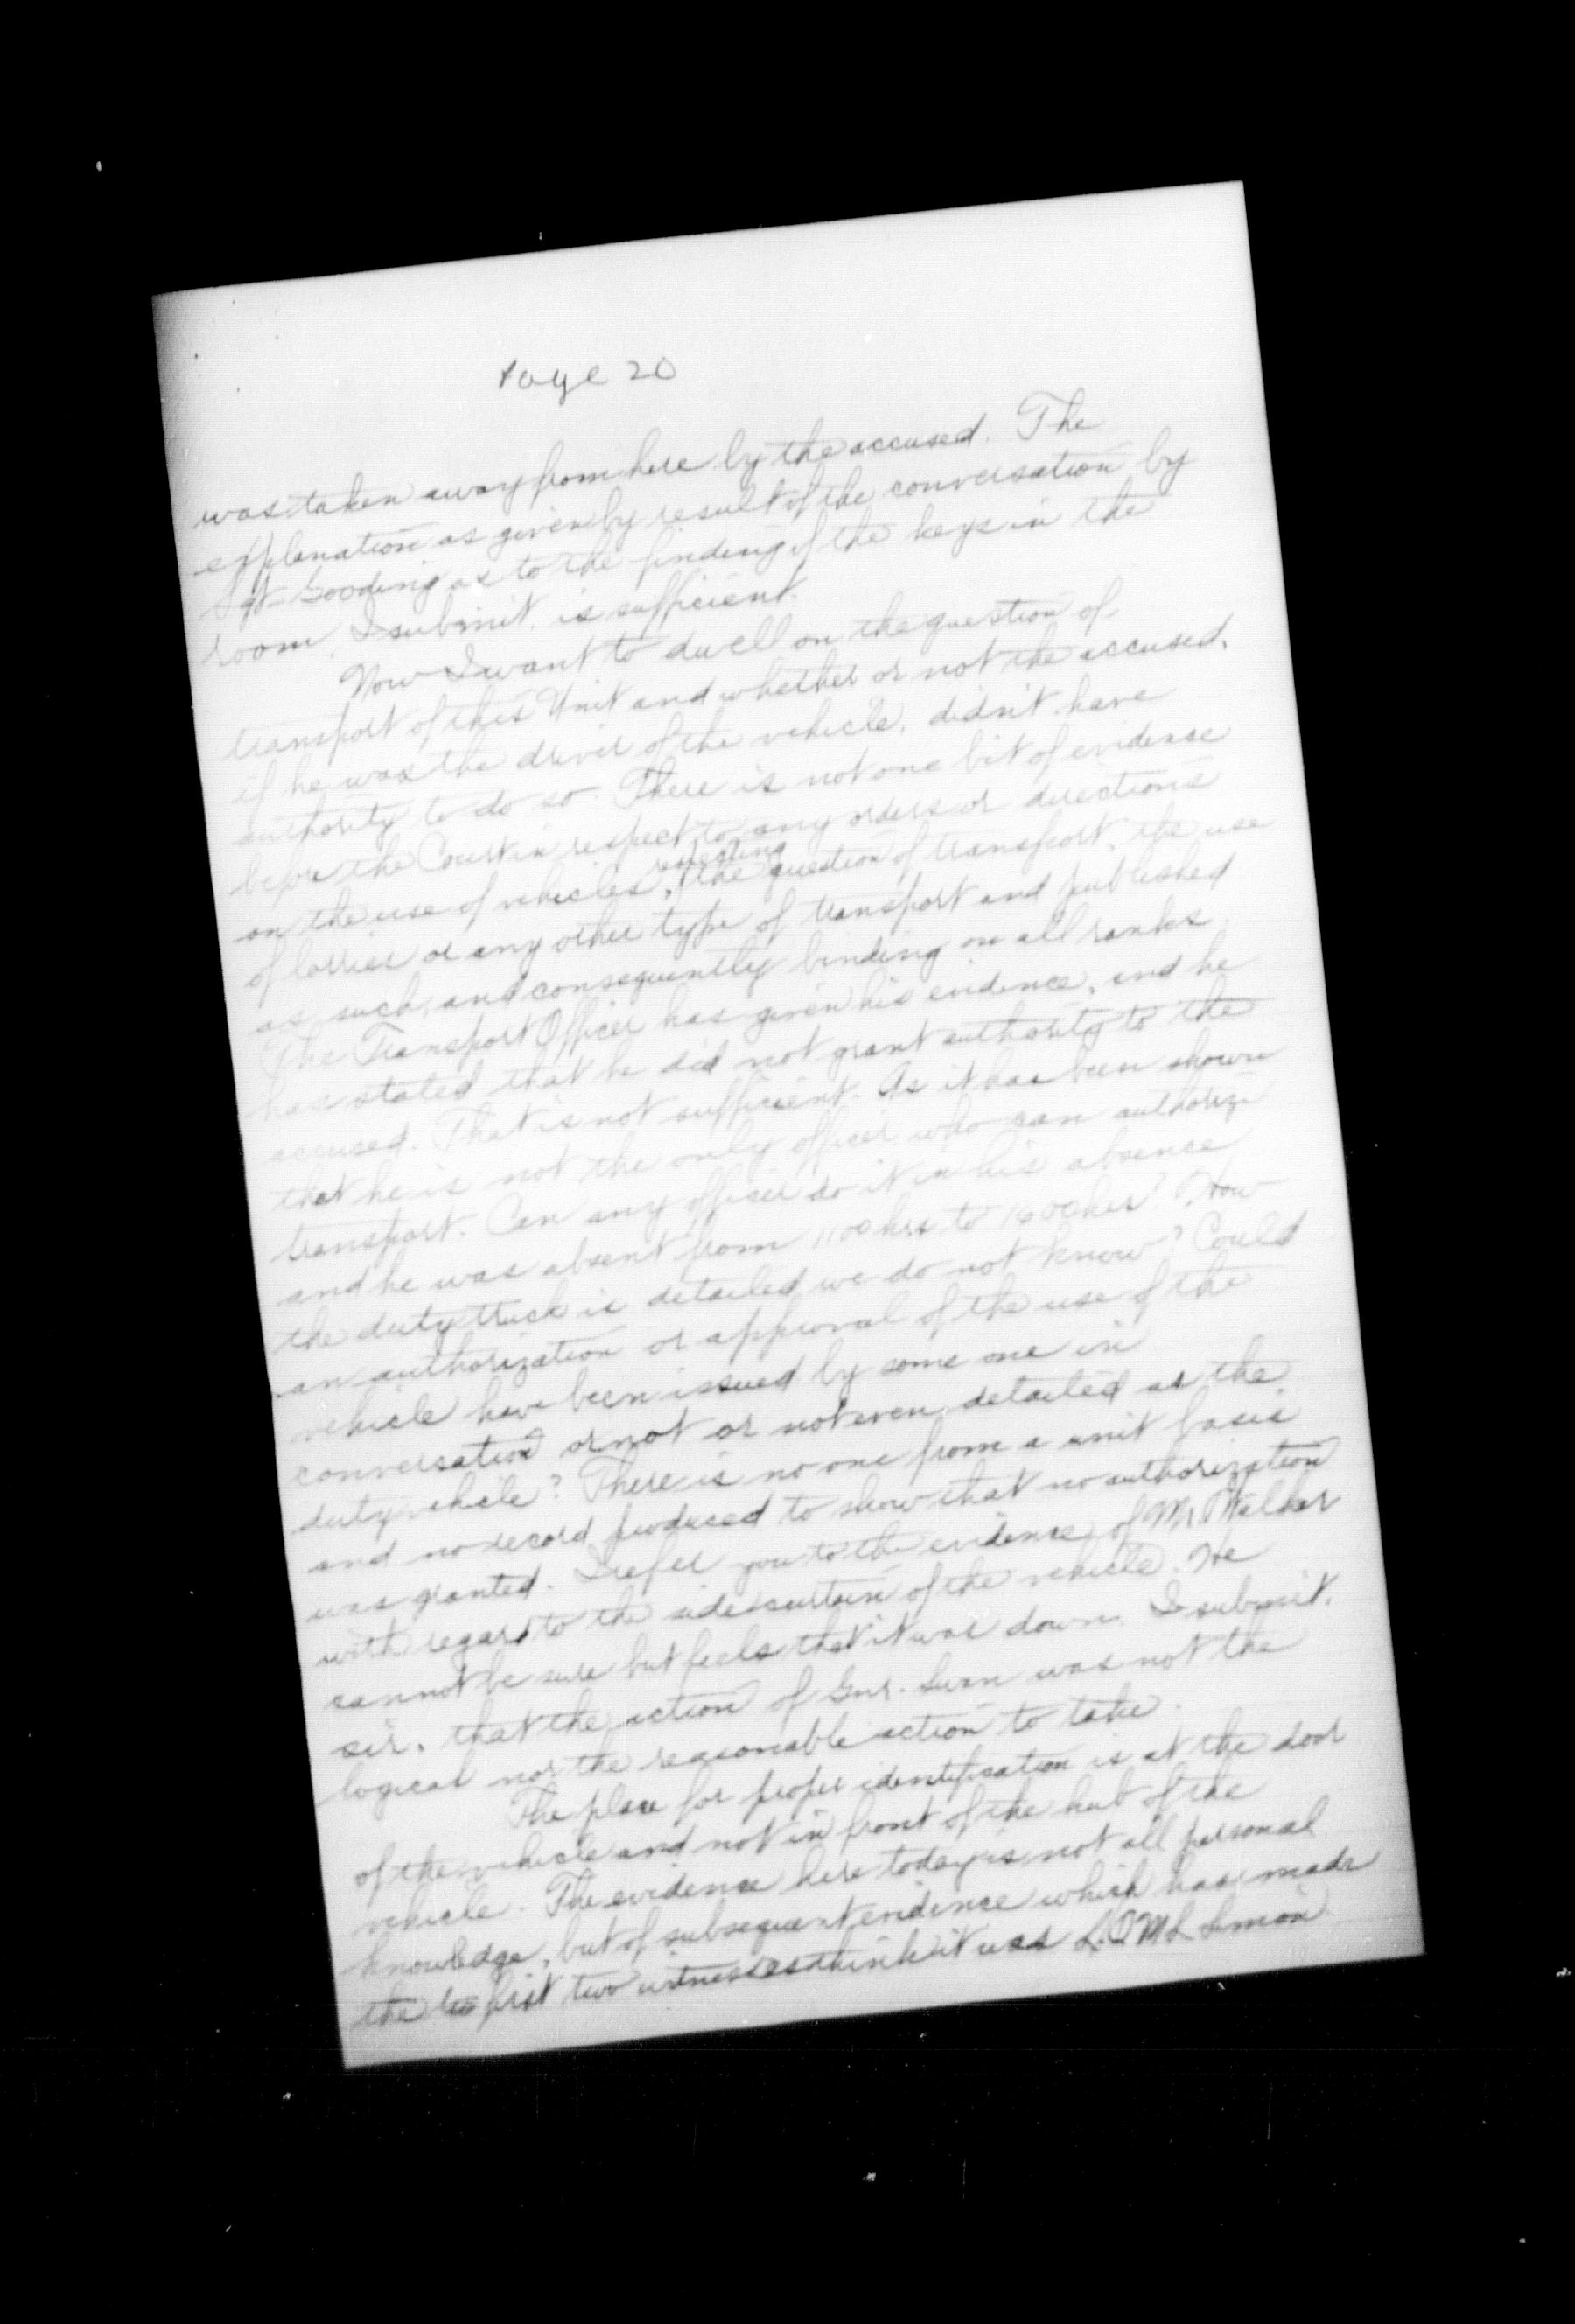 Page 20
was taken away from here by the accused. The
explanation as given by result of the conversation by
Sgt Gooding as to the finding of the keys in the
room, I submit, is sufficient.
Now I want to dwell on the question of
transport of this Unit and whether or not the accused,
if he was the driver of the vehicle, didn't have
authority to do so. There is not one bit of evidence
before the Court in respect to any orders or directions
on the use of vehicles, respecting the question of transport, the use
of lorries or any other type of transport and published
as such, and consequently binding on all ranks.
The Transport Officer has given his evidence, and he
has stated that he did not grant authority to the
accused. That is not sufficient. As it has been shown
that he is not the only officer who can authorize
transport. Can any officer do it in his absence
and he was absent from 1100 hrs to 1600 hrs? How
the duty truck is detailed we do not know? Could
an authorization or approval of the use of the
vehicle have been issued by some one in
conversation or not or not even detailed as the
duty vehicle? There is no one from a unit basis
and no record produced to show that no authorization
was granted. I refer you to the evidence of Mr Walker
with regard to the side curtain of the vehicle. He
cannot be sure but feels that it was down. I submit,
sir, that the action of Gnr. Swan was not the
logical nor the reasonable action to take.
The place for proper identification is at the door
of the vehicle and not in front of the hub of the
vehicle. The evidence here today is not all personal
knowledge, but of subsequent evidence which has made
the first two witnesses think it was